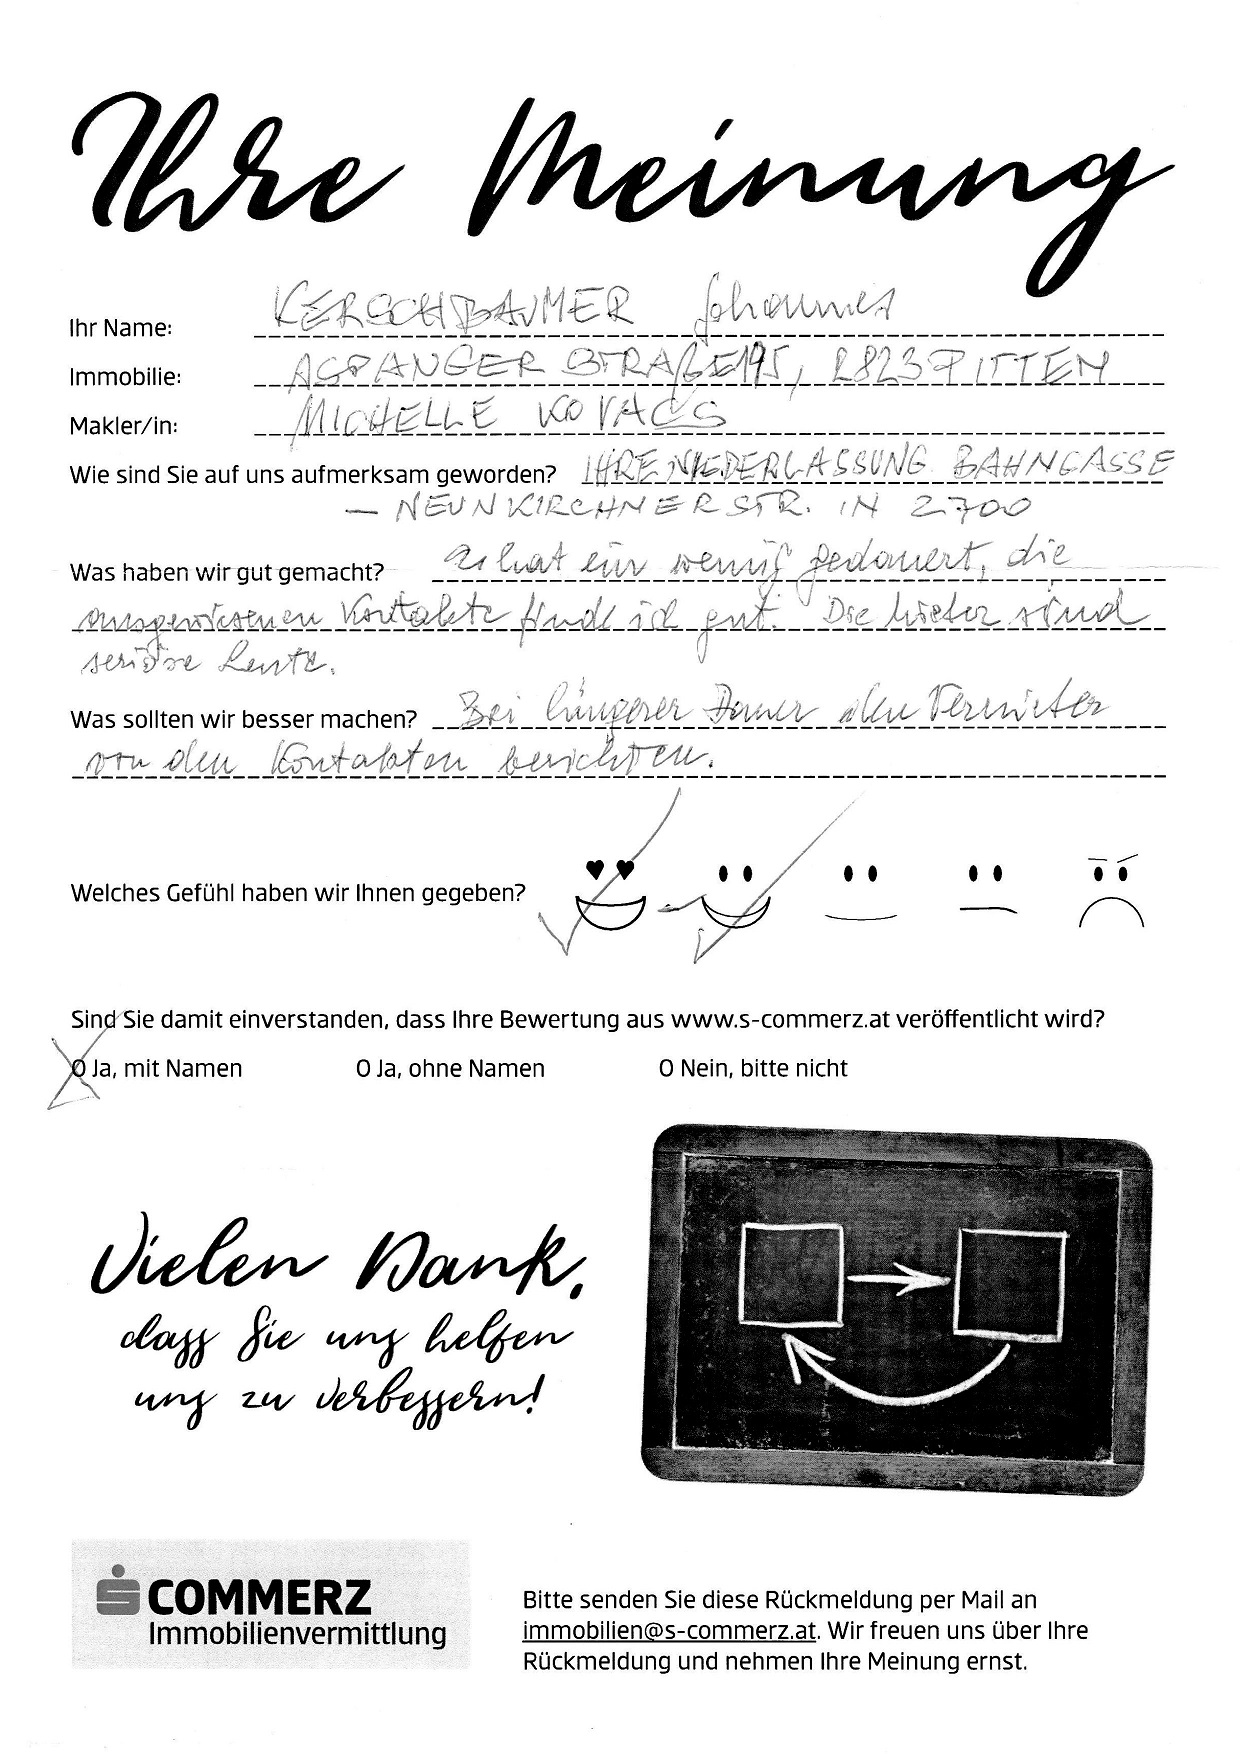 Ihre Meinung
Ihr Name: KERSCHBAUMER Johannes
Immobilie: ASPANGER STRAßE 195, 2823 PITTEN
Makler/in: MICHELLE KOVACS
Wie sind Sie auf uns aufmerksam geworden? IHRE NIEDERLASSUNG BAHNGASSE
– NEUNKIRCHNER STR. IN 2700
Was haben wir gut gemacht? Es hat ein wenig gedauert, die
ausgewiesenen Kontakte finde ich gut. Die Mieter sind
seriöse Leute.
Was sollten wir besser machen? Bei längerer Dauer den Vermieter
von den Kontakten berichten.
Welches Gefühl haben wir Ihnen gegeben?
Sind Sie damit einverstanden, dass Ihre Bewertung aus www.s-commerz.at veröffentlicht wird?
O Ja, mit Namen O Ja, ohne Namen O Nein, bitte nicht
Vielen Dank,
dass Sie uns helfen
uns zu verbessern!
COMMERZ
Immobilienvermittlung
Bitte senden Sie diese Rückmeldung per Mail an
immobilien@s-commerz.at. Wir freuen uns über Ihre
Rückmeldung und nehmen Ihre Meinung ernst.